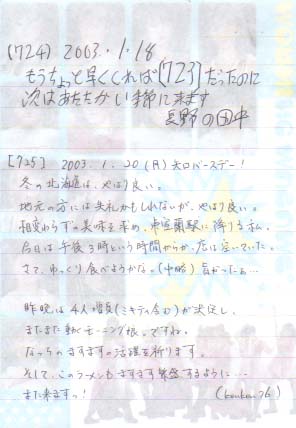 (724) 2003.1.18
もうちょっと早くくれば[723]だったのに
次はあたたかい季節に来ます
長野の田中
[725] 2003.1.20(月)矢口バースデー!
冬の北海道は、やはり良い。
地元の方には失礼かもしれないが、やはり良い。
相変わらずの美味を求め、東室蘭駅に降りる私。
今日は午後3時という時間からか、店は空いていた。
さて、ゆっくり食べようかな。(中略)旨かったぁ…
昨晩は4人増員(ミキティ含む)が決定し、
またまた動くモーニング娘。ですね。
なっちのますますの活躍を祈ります。
そして、このラーメンもますます繁盛するように…
また来ますっ!